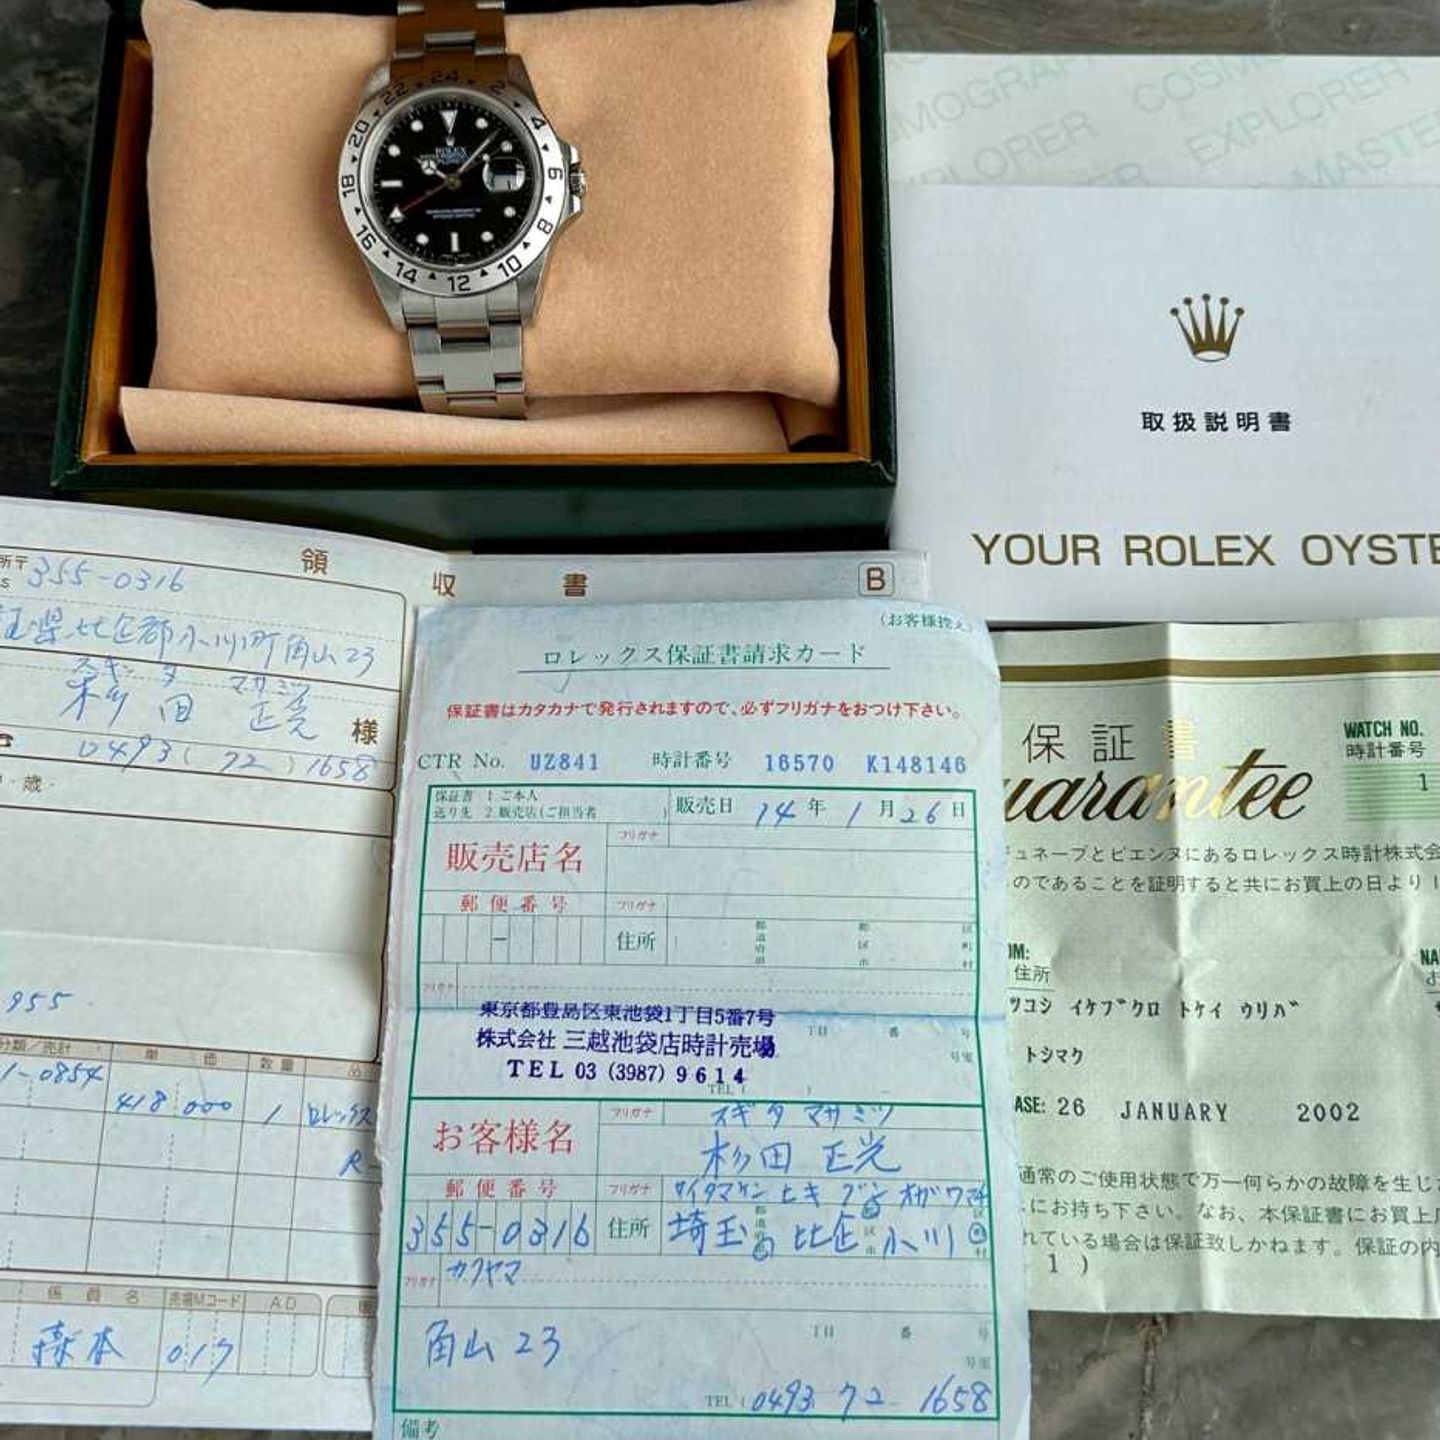 24
2
4
6
8
10
12
14
16
18
20
22
ROLEX
COSMOGRAPH
EXPLORER
EXPLORER
MASTER
取扱説明書
YOUR ROLEX OYSTE
領収書
B
355-0316
県比企郡小川町角山23
スギタ マサミツ
杉田 正光 様
0493(72)1658
歳
955
単価
数量
品
1-0854
418,000 1 ロレックス
係員名
売場Mコード
AD
森本
017
(お客様控え)
ロレックス保証書請求カード
保証書はカタカナで発行されますので、必ずフリガナをおつけ下さい。
CTR No. UZ841 時計番号 16570 K148146
保証書 1.ご本人
送り先 2.販売店(ご担当者 )
販売日 14年 1月26日
フリガナ
販売店名
郵便番号
フリガナ
住所
都道府県
郡区市
区町村
フリガナ
東京都豊島区東池袋1丁目5番7号
丁目 番 号
株式会社 三越池袋店時計売場
号室
TEL 03 (3987) 9614
TEL( )
フリガナ スギタ マサミツ
お客様名
杉田 正光
郵便番号
フリガナ サイタマケン ヒキ グン オガワマチ
355-0316 住所 埼玉県 比企 小川町
フリガナ カクヤマ
丁目 番 号
角山 23
号室
TEL(0493 72 1658
備考
保証書
Guarantee
WATCH NO.
時計番号
1
ジュネーブとビエンヌにあるロレックス時計株式会
のであることを証明すると共にお買上の日より1
OM:
住所
NA
ツコシ イケブクロ トケイ ウリバ
トシマク
ASE: 26 JANUARY 2002
通常のご使用状態で万一何らかの故障を生じ
にお持ち下さい。なお、本保証書にお買上
れている場合は保証致しかねます。保証の内
1 )